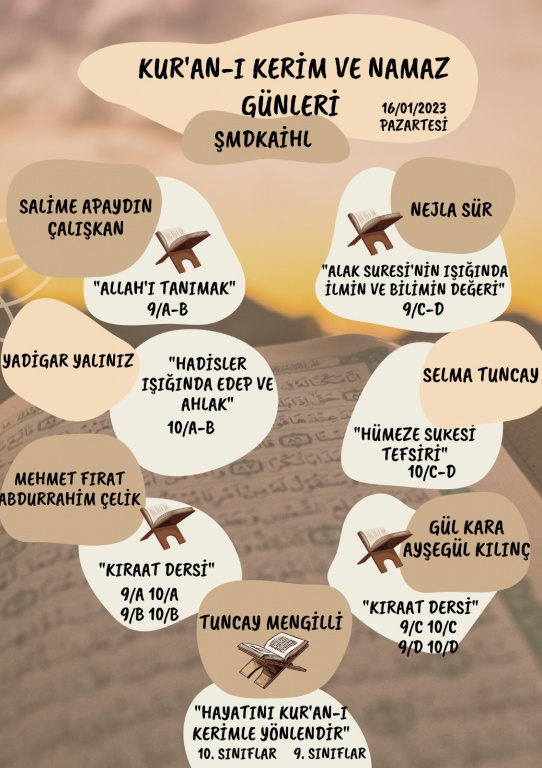 KUR'AN-I KERİM VE NAMAZ
GÜNLERİ
16/01/2023
PAZARTESİ
ŞMDKAİHL
SALİME APAYDIN
ÇALIŞKAN
"ALLAH'I TANIMAK"
9/A-B
NEJLA SÜR
"ALAK SURESİ'NİN IŞIĞINDA
İLMİN VE BİLİMİN DEĞERİ"
9/C-D
YADİGAR YALINIZ
"HADİSLER
IŞIĞINDA EDEP VE
AHLAK"
10/A-B
SELMA TUNCAY
"HÜMEZE SURESİ
TEFSİRİ"
10/C-D
MEHMET FIRAT
ABDURRAHİM ÇELİK
"KIRAAT DERSİ"
9/A 10/A
9/B 10/B
GÜL KARA
AYŞEGÜL KILINÇ
"KIRAAT DERSİ"
9/C 10/C
9/D 10/D
TUNCAY MENGİLLİ
"HAYATINI KUR'AN-I
KERİMLE YÖNLENDİR"
10. SINIFLAR 9. SINIFLAR